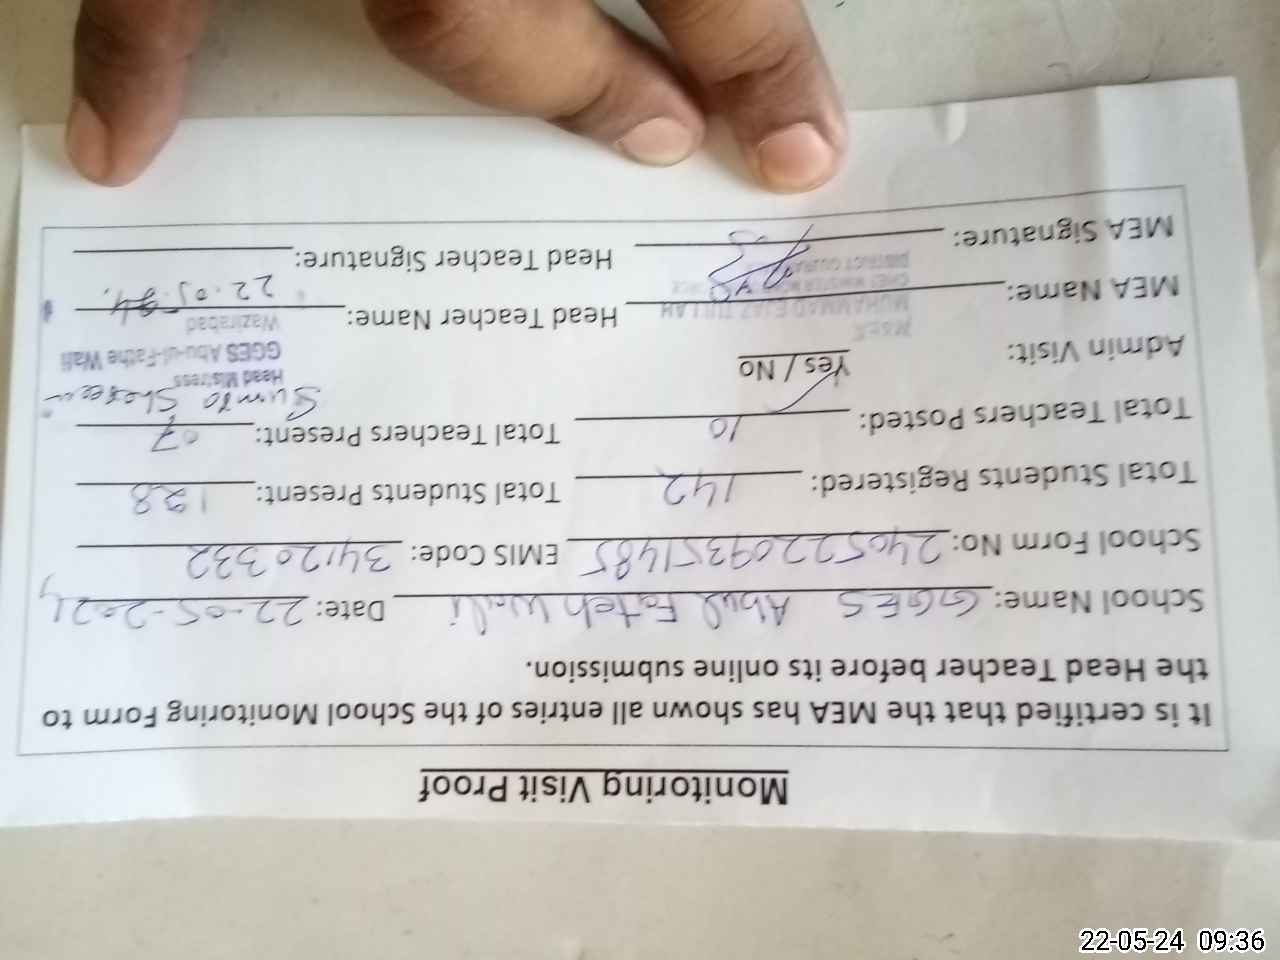 Monitoring Visit Proof
It is certified that the MEA has shown all entries of the School Monitoring Form to
the Head Teacher before its online submission.
School Name: GGES Abul Fateh Wali Date: 22-05-2024
School Form No: 24052209351485 EMIS Code: 34120332
Total Students Registered: 142 Total Students Present: 128
Total Teachers Posted: 10 Total Teachers Present: 07
Admin Visit: Yes / No
Head Mistress
GGES Abu-ul-Fathe Wali
Wazirabad
MUHAMMAD EJAZ
MEA Name: Head Teacher Name: 22.05.24.
DISTRICT
MEA Signature: Head Teacher Signature:
22-05-24 09:36